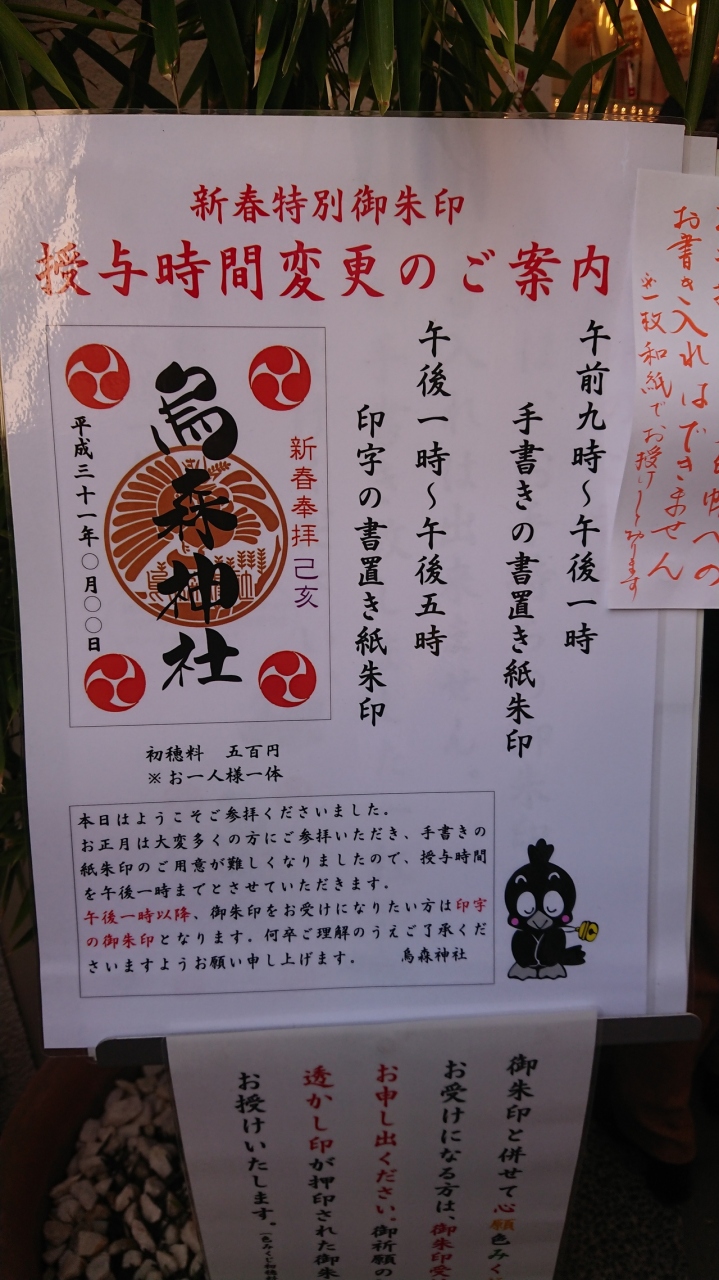 新春特別御朱印
授与時間変更のご案内
午前九時～午後一時
手書きの書置き紙朱印
午後一時～午後五時
印字の書置き紙朱印
新春奉拝 己亥
烏森神社
平成三十一年〇月〇〇日
初穂料 五百円
※お一人様一体
本日はようこそご参拝くださいました。
お正月は大変多くの方にご参拝いただき、手書きの
紙朱印のご用意が難しくなりましたので、授与時間
を午後一時までとさせていただきます。
午後一時以降、御朱印をお受けになりたい方は印字
の御朱印となります。何卒ご理解のうえご了承くだ
さいますようお願い申し上げます。 烏森神社
帳への
お書き入れはできません
※一枚和紙でお授けしております
御朱印と併せて心願色みく
お受けになる方は、御朱印受
お申し出ください。御祈願の
透かし印が押印された御朱
お授けいたします。